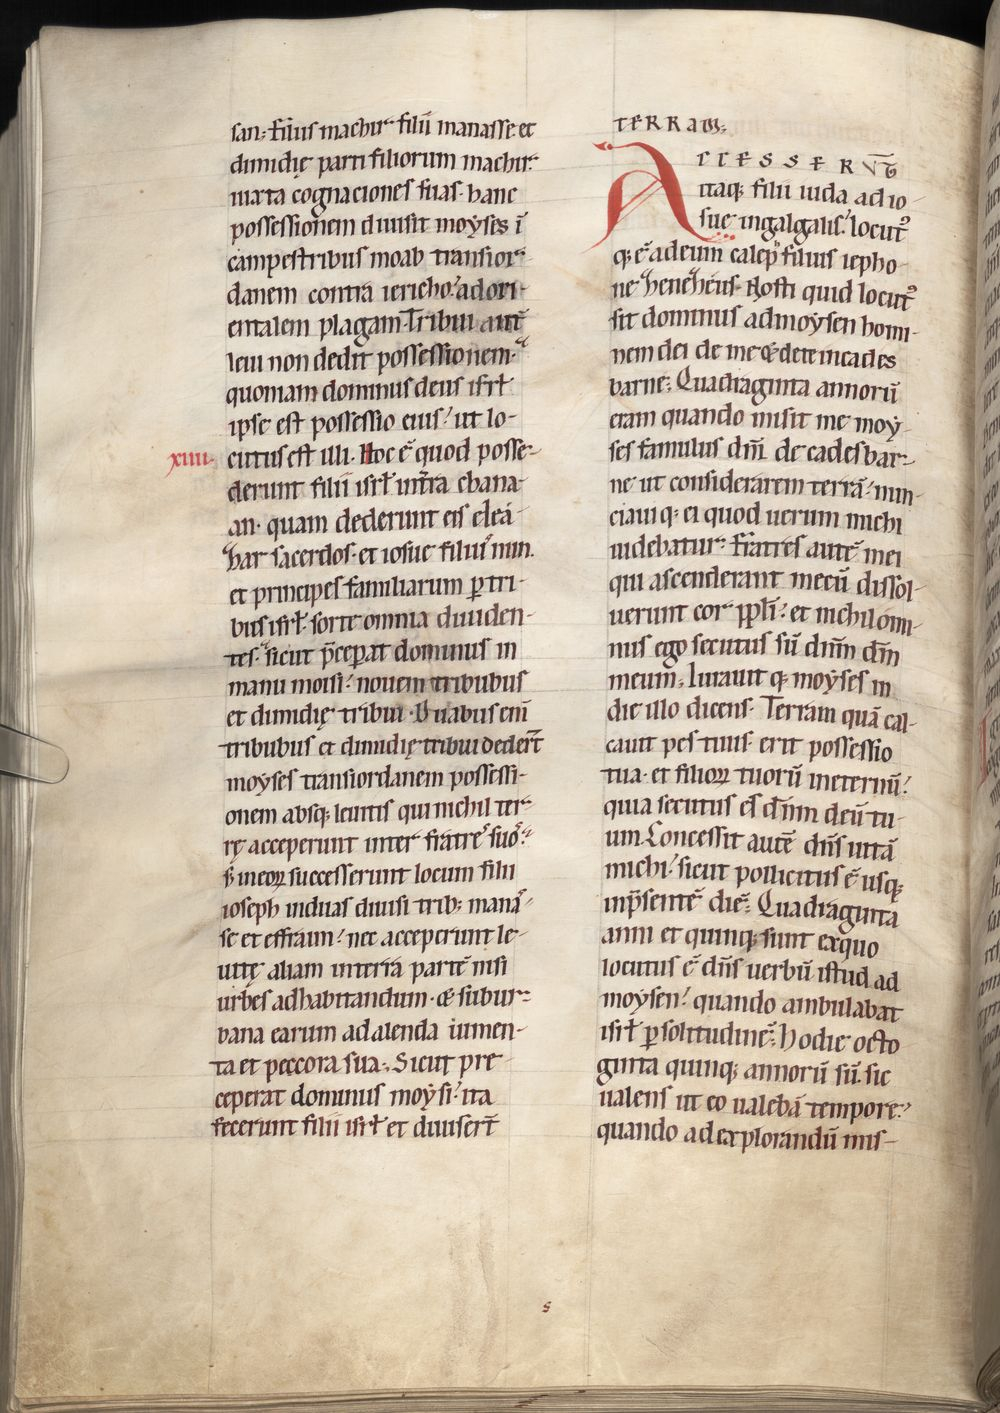 san; filius machir filii manasse et
dimidię parti filiorum machir
iuxta cognaciones suas. hanc
possessionem diuisit moyses ī
campestribus moab transior-
danem contra iericho. ad ori-
entalem plagam. Tribui autē
leui non dedit possessionem.
quoniam dominus deus isrł
ipse est possessio eius. ut lo-
xiiii. cutus est illi. Hoc ē quod posse-
derunt filii isrł in terra chana-
an. quam dederunt eis elea-
zar sacerdos. et iosue filius nun.
et principes familiarum ꝑ tri-
bus isrł. sorte omnia diuiden-
tes. sicut p̄ceperat dominus in
manu moisi. nouem tribubus
et dimidię tribui. Duabus enī
tribubus et dimidię tribui dedert̄
moyses transiordanem possessi-
onem absq; leuitis qui nichil ter-
rę acceperunt inter fratres suos.
s; in eoꝝ successerunt locum filii
ioseph in duas diuisi trib; manas-
se et effraim. nec acceperunt le-
uitę aliam in terra partē nisi
urbes ad habitandum. & subur-
bana earum ad alenda iumen-
ta et peccora sua. Sicut pre-
ceperat dominus moysi. ita
fecerunt filii isrł et diuisert̄
TERRAM.
ACCESSERVNT̄
itaq; filii iuda ad io-
sue in galgalis. locut⁹
q; ē ad eum caleph filius iepho-
ne henezeus. Nosti quid locut⁹
sit dominus ad moysen homi-
nem dei de me & de te in cades
barne; Quadraginta annorū
eram quando misit me moy-
ses famulus dm̄i de cades bar-
ne ut considerarem terrā. nun-
ciaui q; ei quod uerum michi
uidebatur. Fratres autē mei
qui ascenderant mecū dissol-
uerunt cor ppłi. et nichilomi-
nus ego secutus sū dnm̄ dm̄
meum. Iurauit q; moyses in
die illo dicens. Terram quā cal-
cauit pes tuus. erit possessio
tua. et filioꝝ tuorū in eternū.
quia secutus es dnm̄ deū tu-
um. Concessit autē dn̄s uitā
michi. sicut pollicitus ē usq;
in p̄sentē diē. Quadraginta
anni et quinq; sunt ex quo
locutus ē dn̄s uerbū istud ad
moysen. quando ambulabat
isrł ꝑ solitudinē. Hodie octo-
ginta quinq; annorū sū. sic
ualens ut eo ualebā tempore.
quando ad explorandū mis-
s